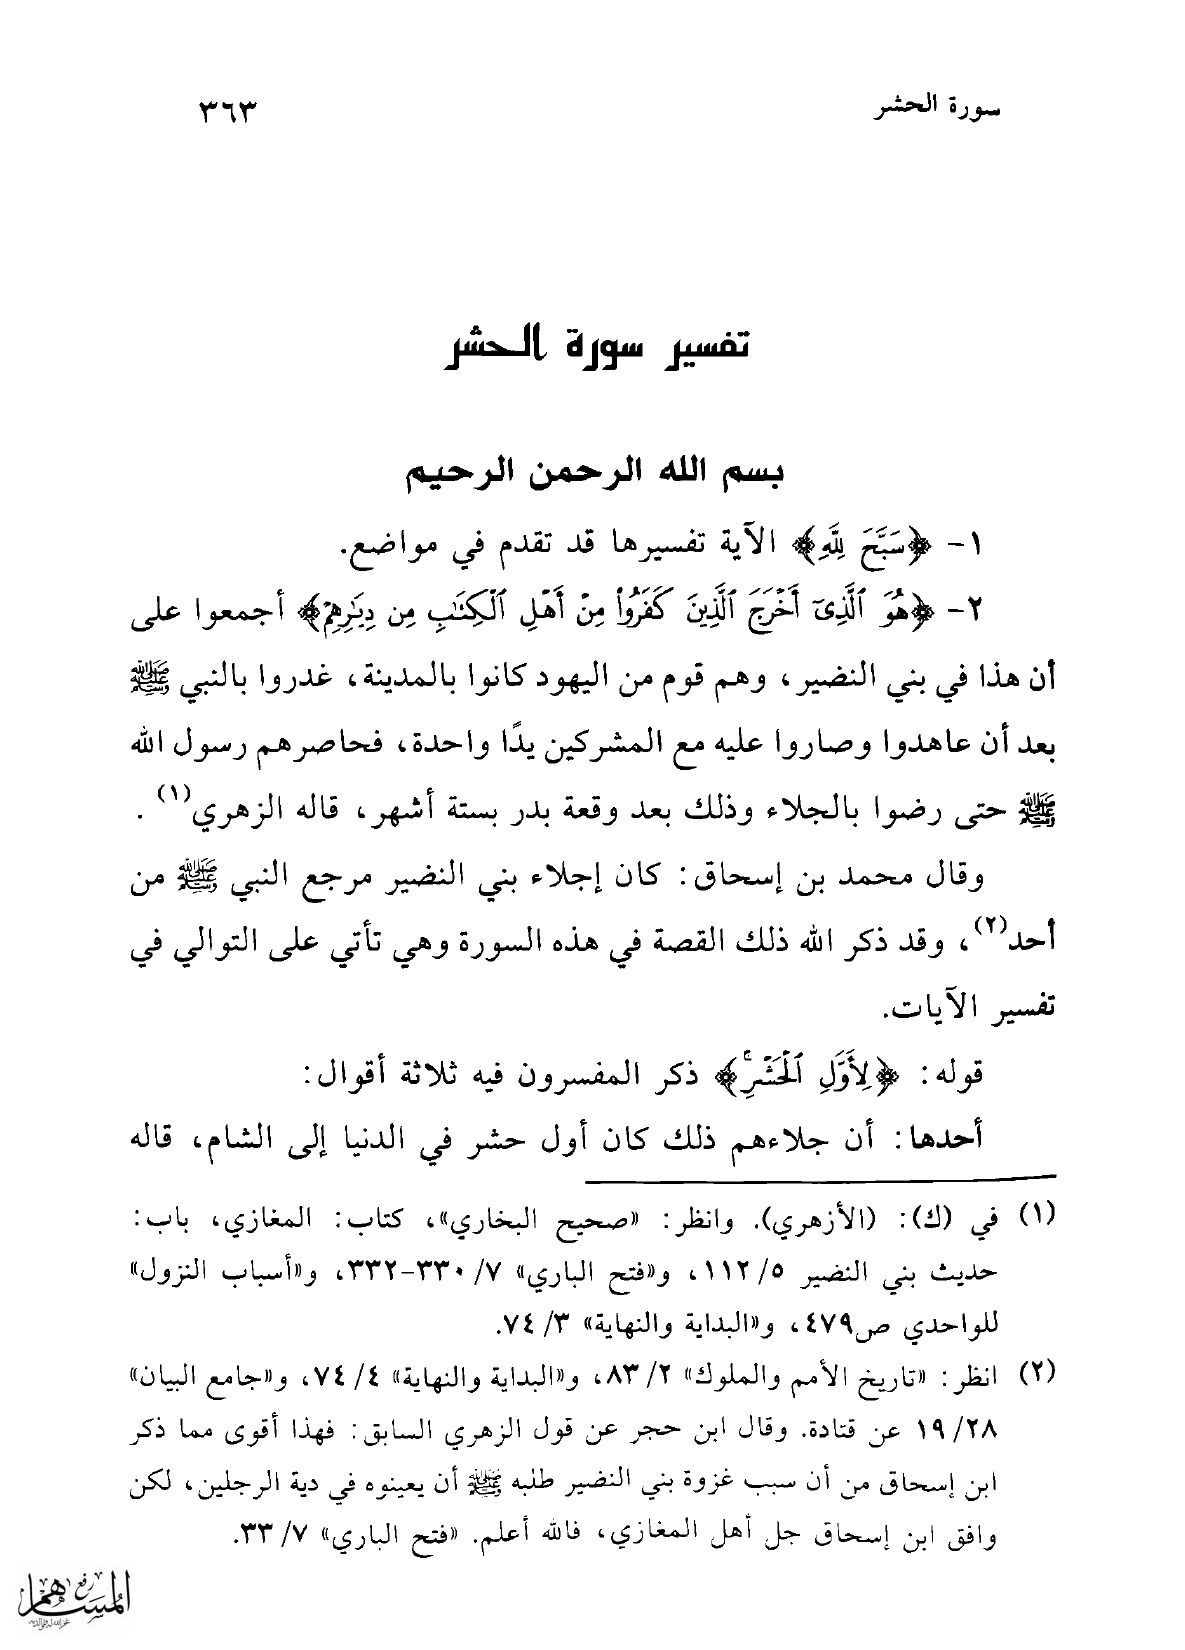 سورة الحشر ٣٦٣
تفسير سورة الحشر
بسم الله الرحمن الرحيم
١- ﴿سَبَّحَ لِلَّهِ﴾ الآية تفسيرها قد تقدم في مواضع.
٢- ﴿هُوَ ٱلَّذِىٓ أَخْرَجَ ٱلَّذِينَ كَفَرُوا۟ مِنْ أَهْلِ ٱلْكِتَٰبِ مِن دِيَٰرِهِمْ﴾ أجمعوا على
أن هذا في بني النضير، وهم قوم من اليهود كانوا بالمدينة، غدروا بالنبي ﷺ
بعد أن عاهدوا وصاروا عليه مع المشركين يدًا واحدة، فحاصرهم رسول الله
ﷺ حتى رضوا بالجلاء وذلك بعد وقعة بدر بستة أشهر، قاله الزهري(١).
وقال محمد بن إسحاق: كان إجلاء بني النضير مرجع النبي ﷺ من
أحد(٢)، وقد ذكر الله ذلك القصة في هذه السورة وهي تأتي على التوالي في
تفسير الآيات.
قوله: ﴿لِأَوَّلِ ٱلْحَشْرِۚ﴾ ذكر المفسرون فيه ثلاثة أقوال:
أحدها: أن جلاءهم ذلك كان أول حشر في الدنيا إلى الشام، قاله
(١) في (ك): (الأزهري). وانظر: «صحيح البخاري»، كتاب: المغازي، باب:
حديث بني النضير ٥/ ١١٢، و«فتح الباري» ٧/ ٣٣٠-٣٣٢، و«أسباب النزول»
للواحدي ص٤٧٩، و«البداية والنهاية» ٣/ ٧٤.
(٢) انظر: «تاريخ الأمم والملوك» ٢/ ٨٣، و«البداية والنهاية» ٤/ ٧٤، و«جامع البيان»
٢٨/ ١٩ عن قتادة. وقال ابن حجر عن قول الزهري السابق: فهذا أقوى مما ذكر
ابن إسحاق من أن سبب غزوة بني النضير طلبه ﷺ أن يعينوه في دية الرجلين، لكن
وافق ابن إسحاق جل أهل المغازي، فالله أعلم. «فتح الباري» ٧/ ٣٣.